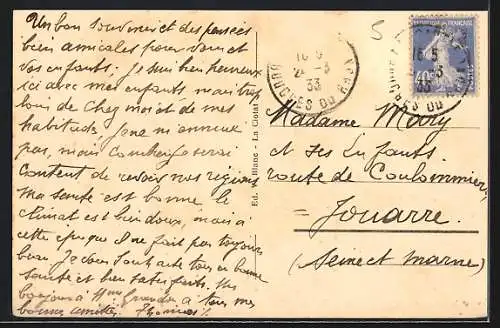 Un bon Souvenir et des pensées
bien amicales pour vous et
vos enfants. Je suis bien heureux
ici avec mes enfants mais trop
loin de chez moi et de mes
habitudes je ne m'ennuie
pas, mais combien je serai
content de revoir nos régions
Ma santé est bonne le
climat est bien doux, mais à
cette époque il ne fait pas toujours
beau Je vous souhaite tous en bonne
santé et bien satisfaits. Un
bonjour à Mme à tous mes
bonnes amitiés. Thomas
Ed. Blanc - La Ciotat
16 5
3
33
BOUCHES DU RHÔNE
40
Madame Mary
et ses Enfants
route de Coulommiers
Jouarre.
(Seine et Marne)